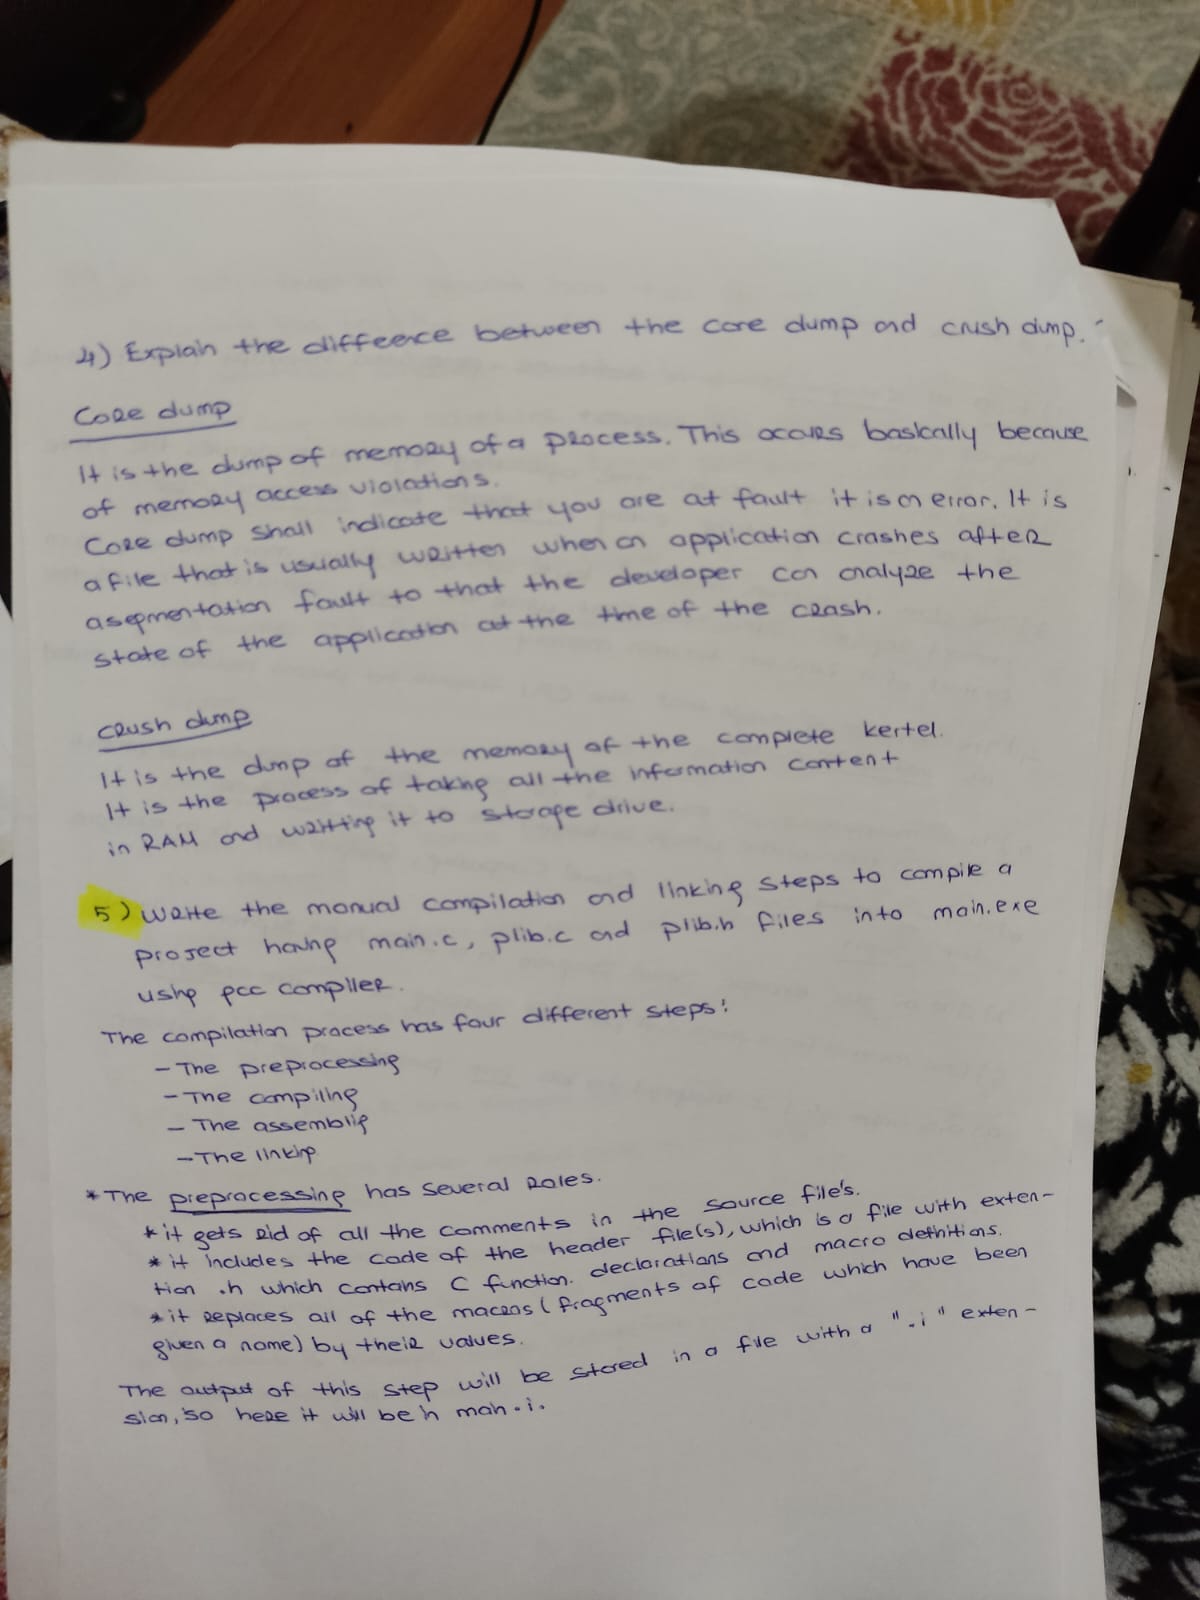 4) Explain the diffeerce between the core dump and crush dump.
Core dump
It is the dump of memory of a process. This occurs basically because
of memory access violations.
Core dump shall indicate that you are at fault it is an error. It is
a file that is usually written when an application crashes after
a segmentation fault to that the developer can analyze the
state of the application at the time of the crash.
crush dump
It is the dump of the memory of the complete kertel.
It is the process of taking all the information content
in RAM and writting it to storage drive.
5) Write the manual compilation and linking steps to compile a
project having main.c, plib.c and plib.h files into main.exe
using gcc compiler.
The compilation process has four different steps:
- The preprocessing
- The compiling
- The assemblig
- The linking
* The preprocessing has several roles.
* it gets rid of all the comments in the source file's.
* it includes the code of the header file(s), which is a file with exten-
tion .h which contains C function. declarations and macro definitions.
* it replaces all of the macros (fragments of code which have been
given a name) by their values.
The output of this step will be stored in a file with a ".i" exten-
sion, so here it will be in main.i.